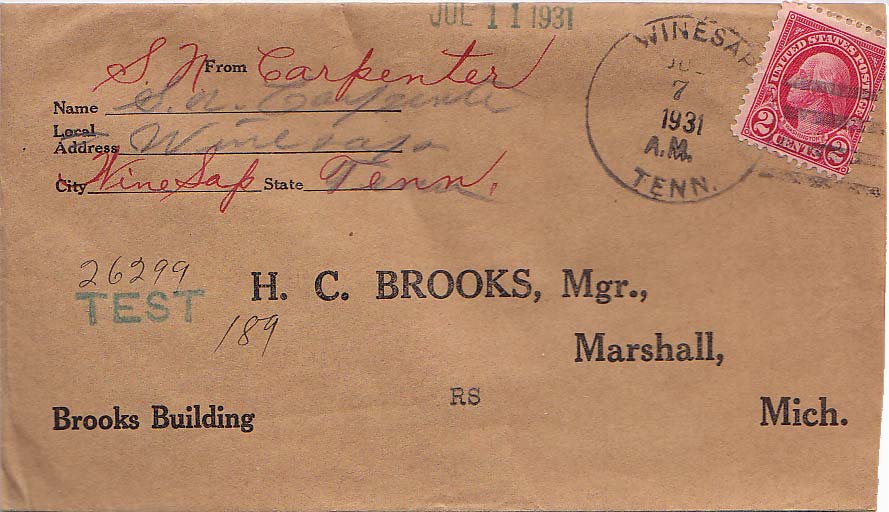 JUL 11 1931
S. N. Carpenter
From
Name S. N. Carpenter
Local
Address Winesap
City WineSap State Tenn.
WINESAP
7
1931
A.M.
TENN.
UNITED STATES POSTAGE
WASHINGTON
2 CENTS 2
26299
TEST
189
H. C. BROOKS, Mgr.,
Marshall,
Mich.
RS
Brooks Building